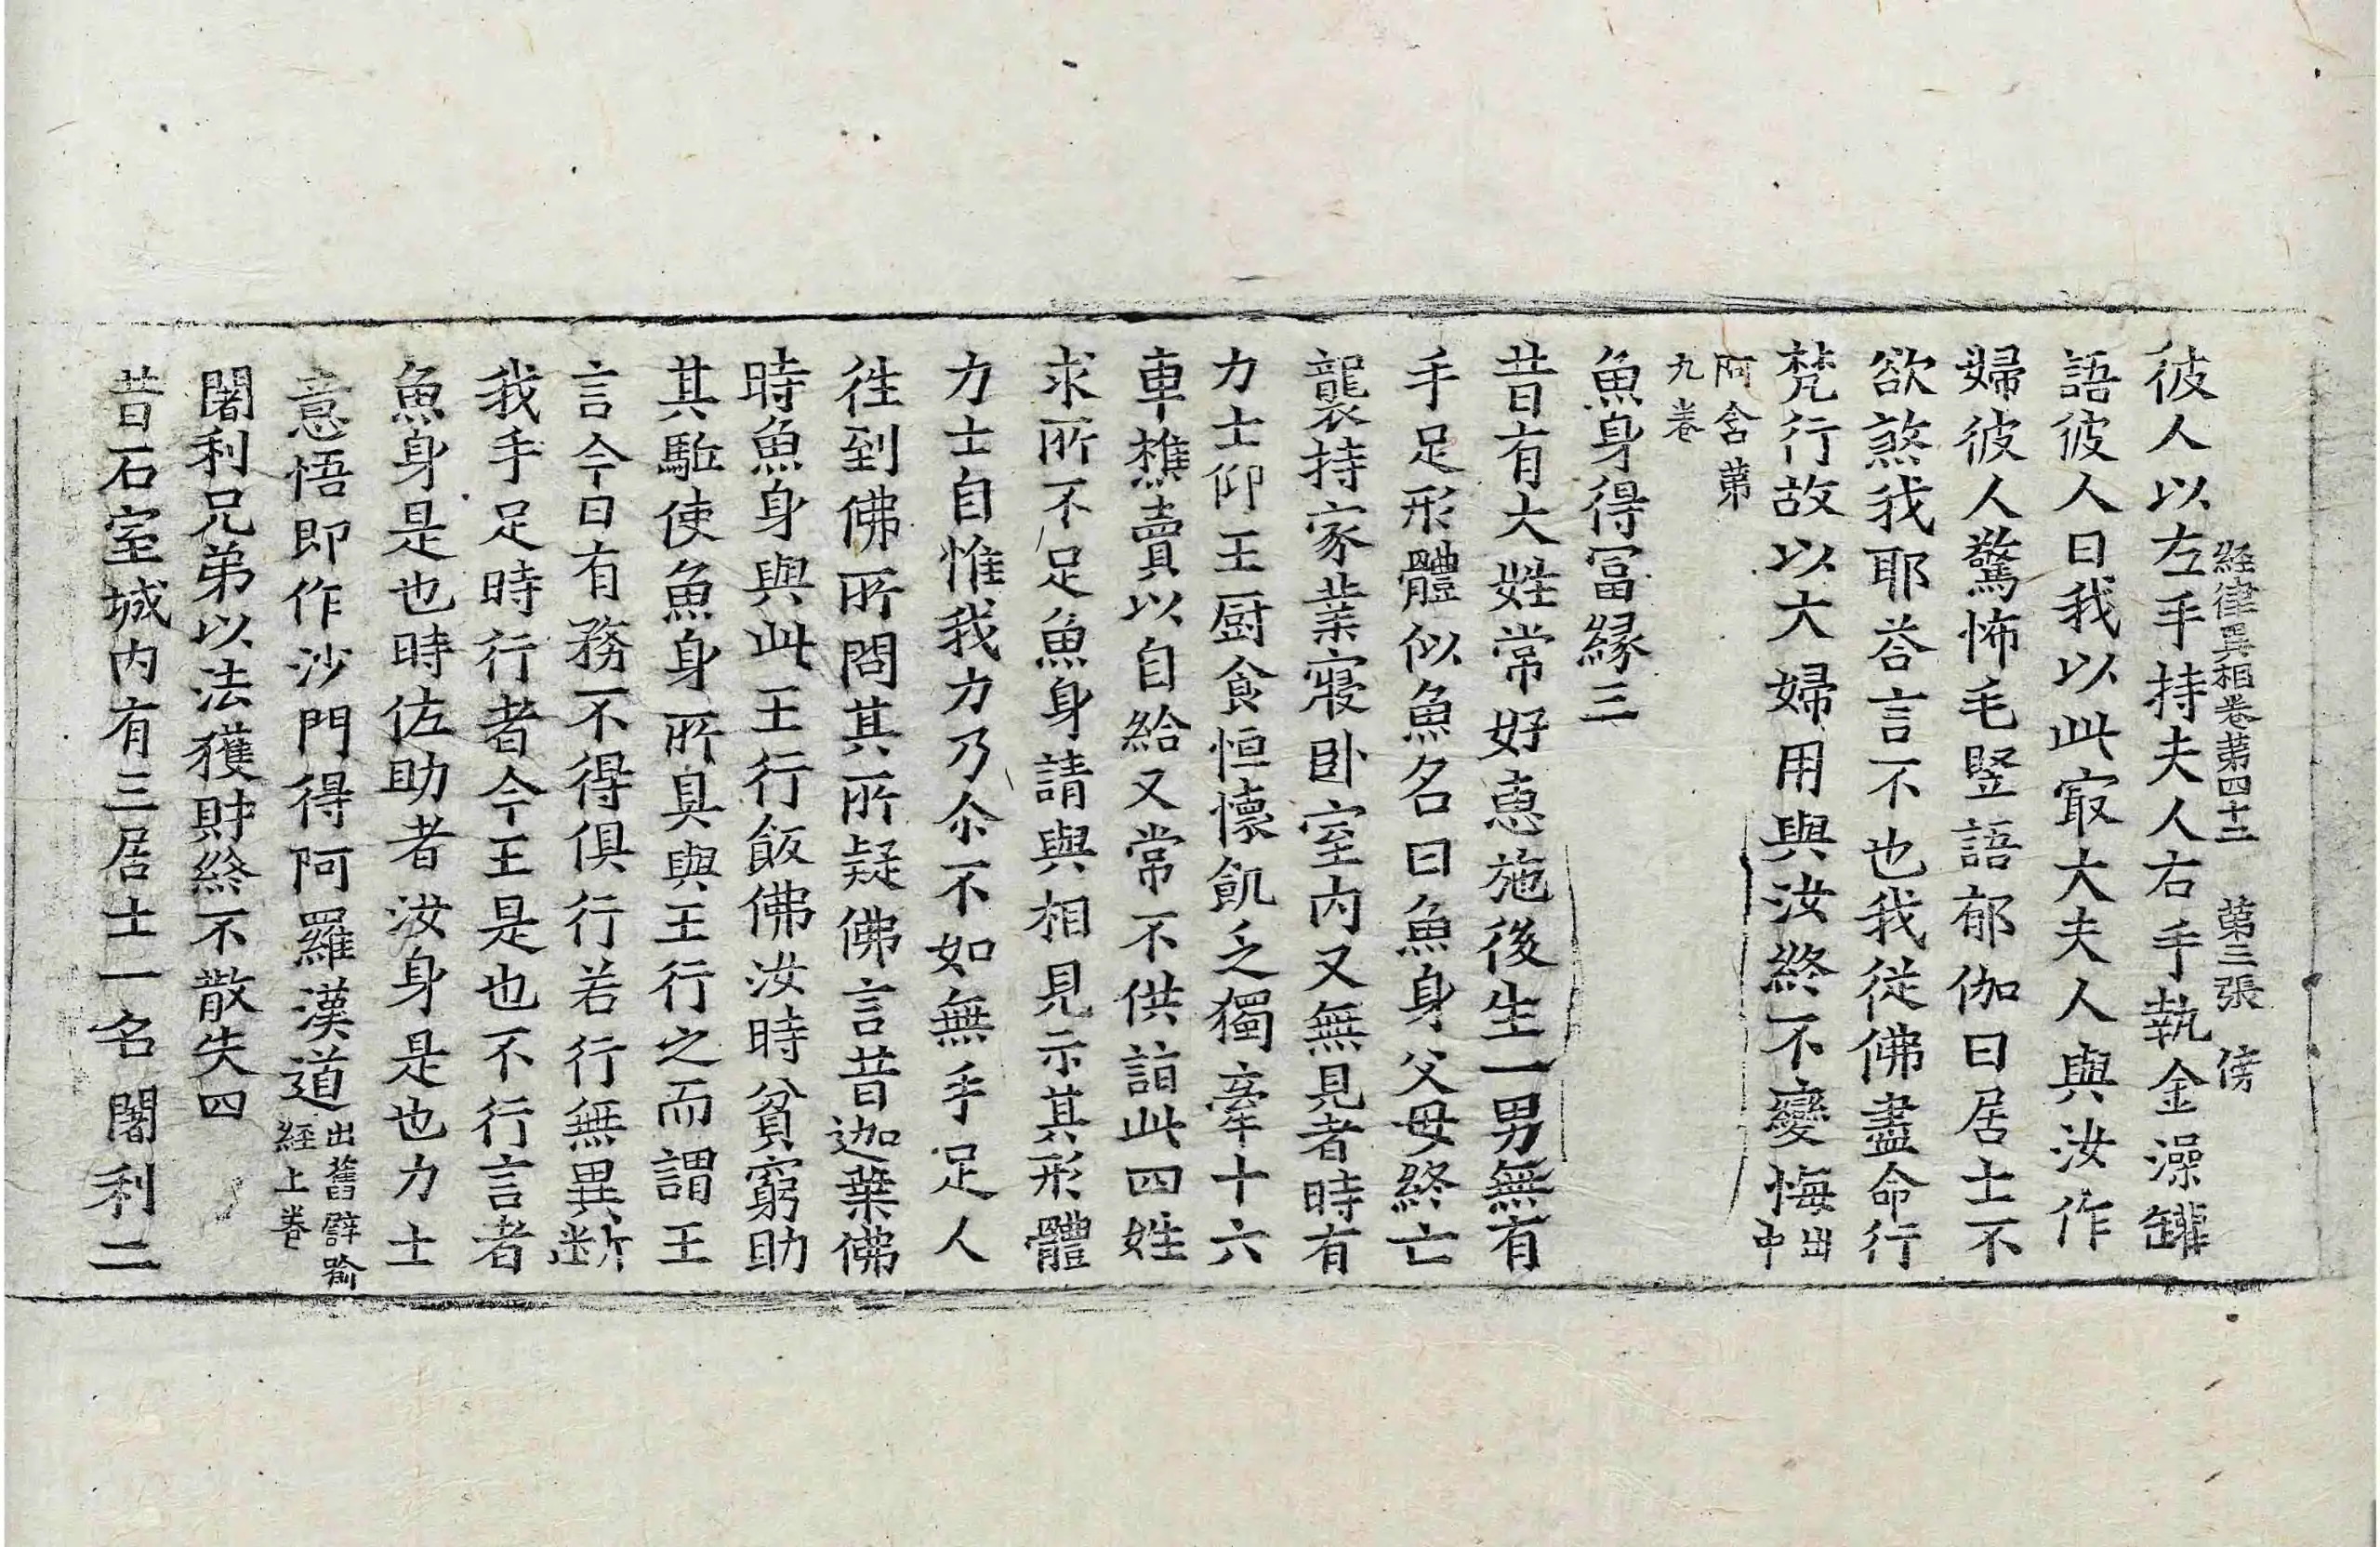 經律異相卷第四十二 第三張 傍
彼人以左手持夫人右手執金澡罐
語彼人曰我以此㝡大夫人與汝作
婦彼人驚怖毛竪語郁伽曰居士不
欲煞我耶荅言不也我從佛盡命行
梵行故以大婦用與汝終不變悔出中
阿含第九卷
魚身得冨緣三
昔有大姓常好惠施後生一男無有
手足形體似魚名曰魚身父母終亡
襲持家業寢卧室内又無見者時有
力士仰王厨食恒懷飢乏獨牽十六
車樵賣以自給又常不供詣此四姓
求所不足魚身請與相見示其形體
力士自惟我力乃尒不如無手足人
徃到佛所問其所疑佛言昔迦葉佛
時魚身與此王行飯佛汝時貧窮助
其駈使魚身所具與王行之而謂王
言今日有務不得俱行若行無異斷
我手足時行者今王是也不行言者
魚身是也時佐助者汝身是也力士
意悟即作沙門得阿羅漢道出舊譬喻經上卷
闍利兄弟以法獲財終不散失四
昔石室城内有三居士一名闍利二